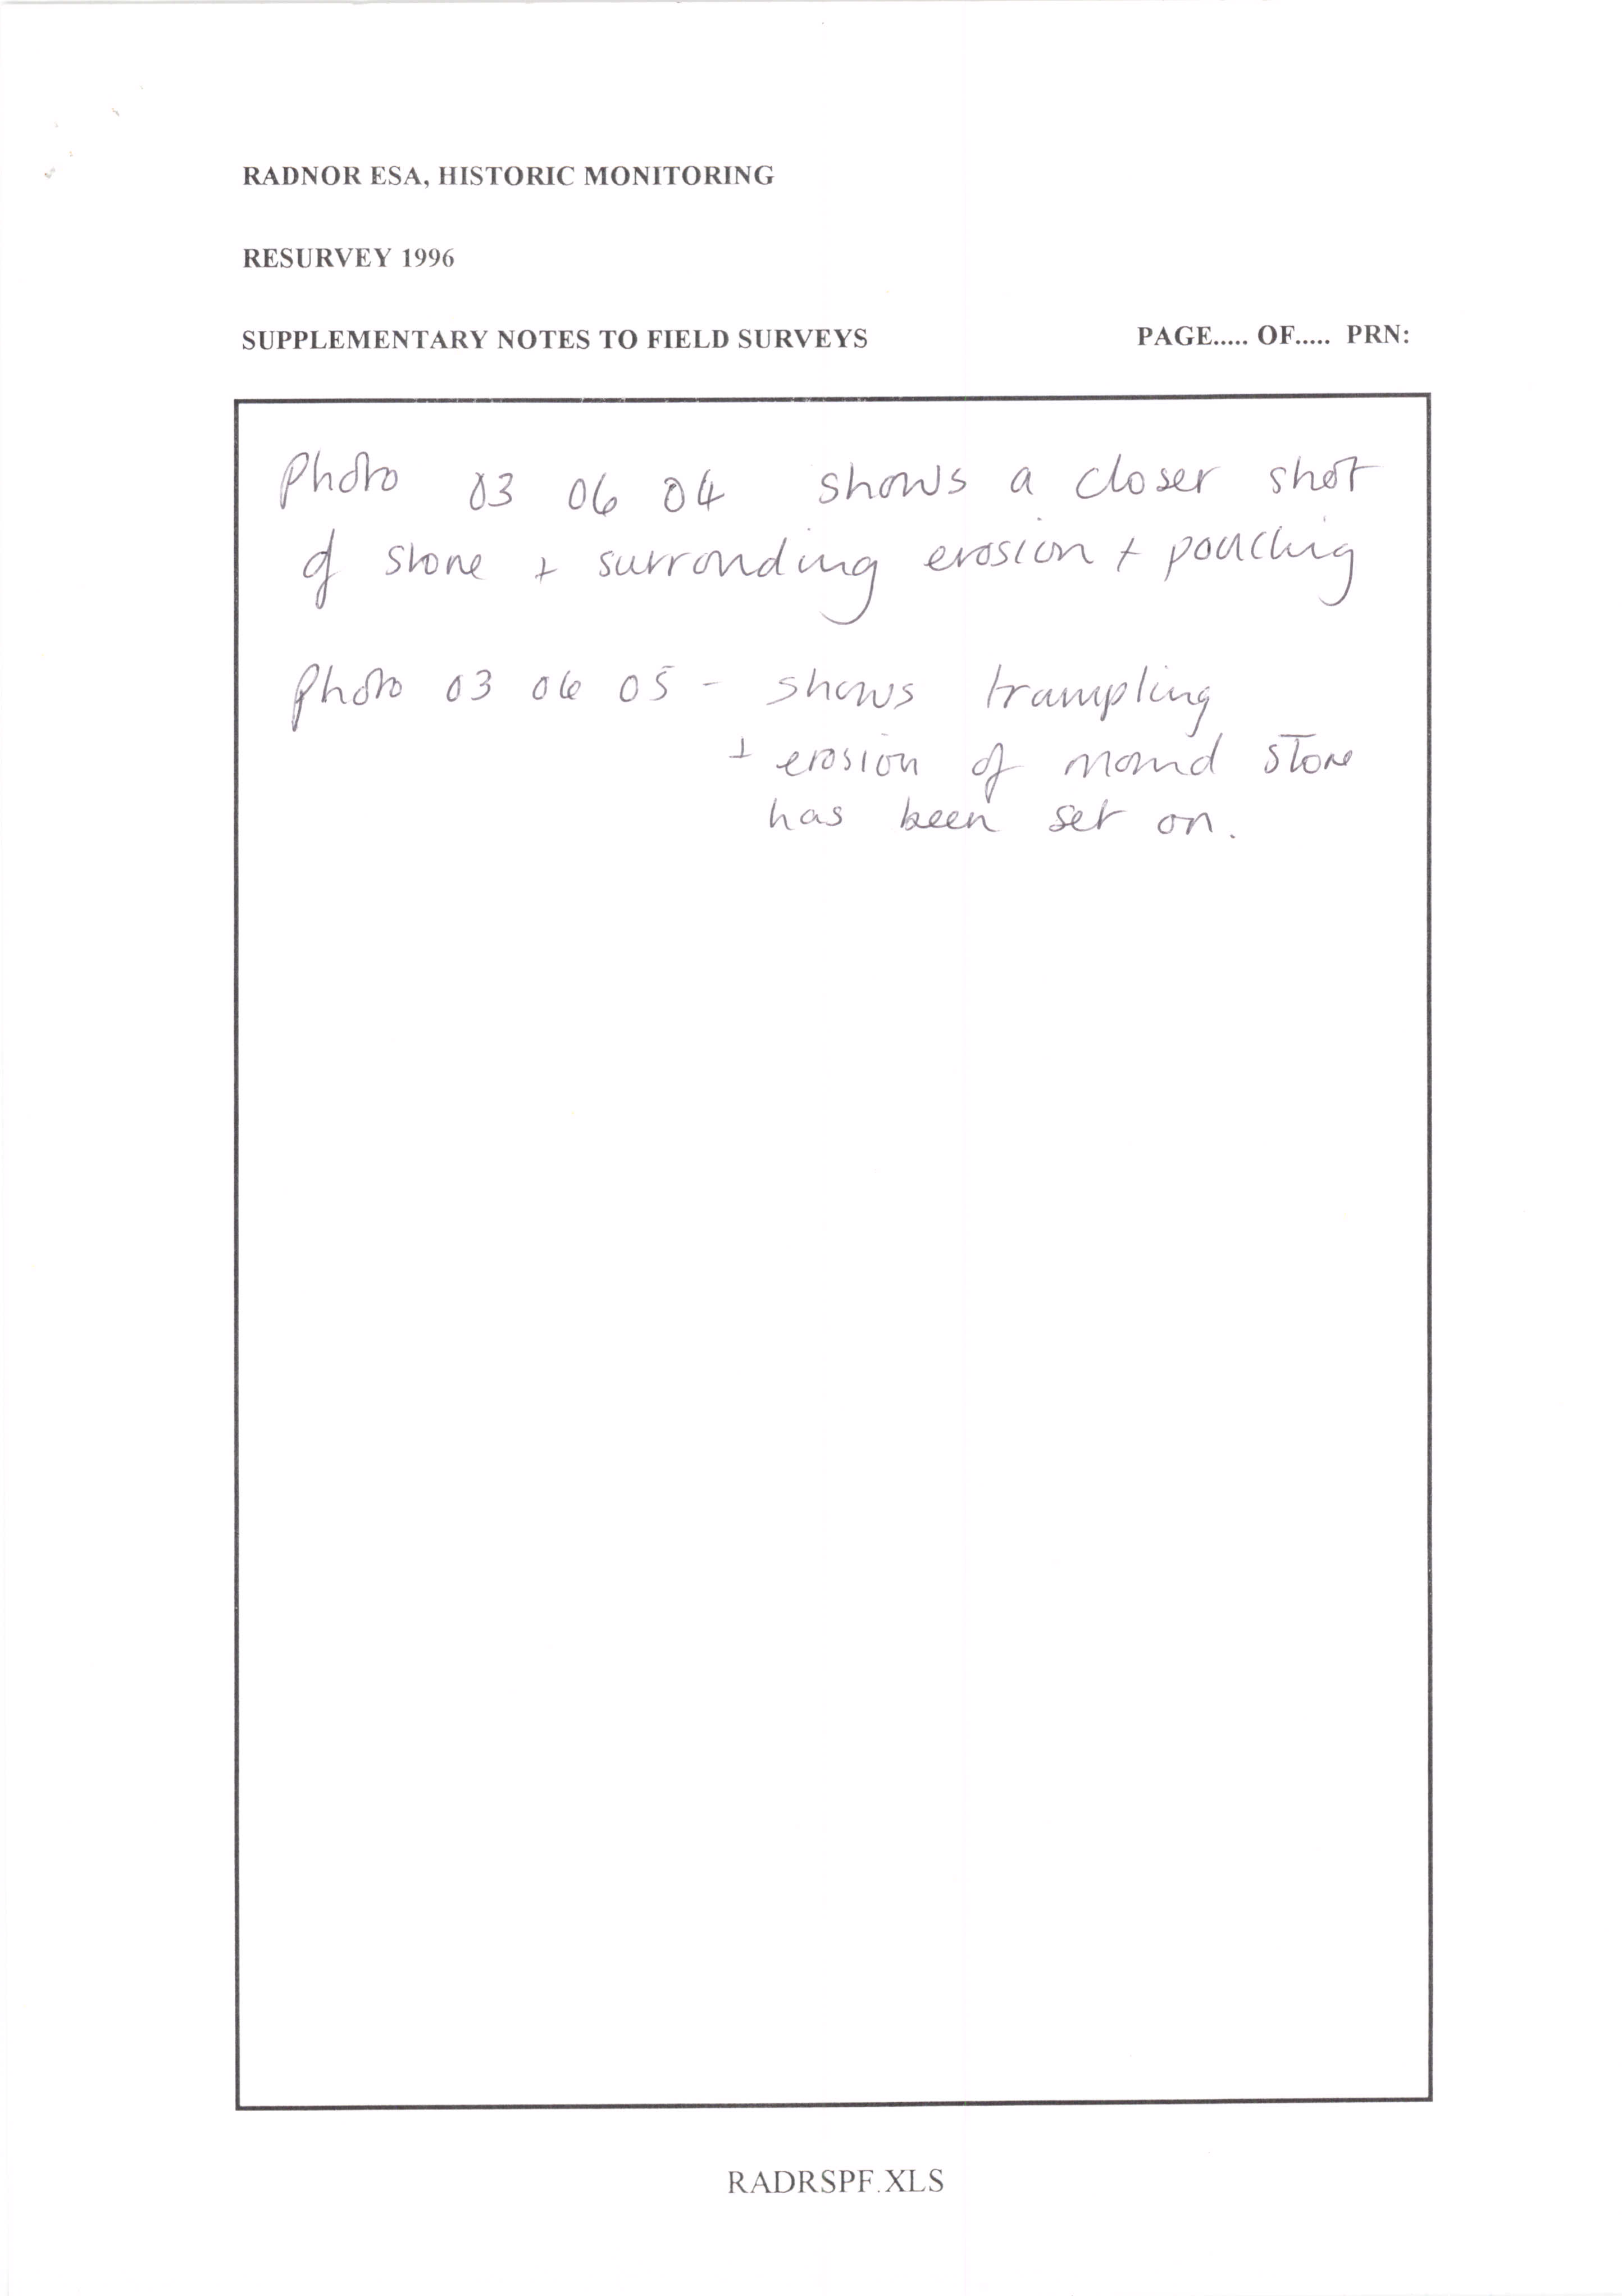 RADNOR ESA, HISTORIC MONITORING
RESURVEY 1996
SUPPLEMENTARY NOTES TO FIELD SURVEYS PAGE..... OF..... PRN:
Photo 03 06 04 shows a closer shot
of stone + surronding erosion + poaching
Photo 03 06 05 - shows trampling
+ erosion of mound stone
has been set on.
RADRSPF.XLS